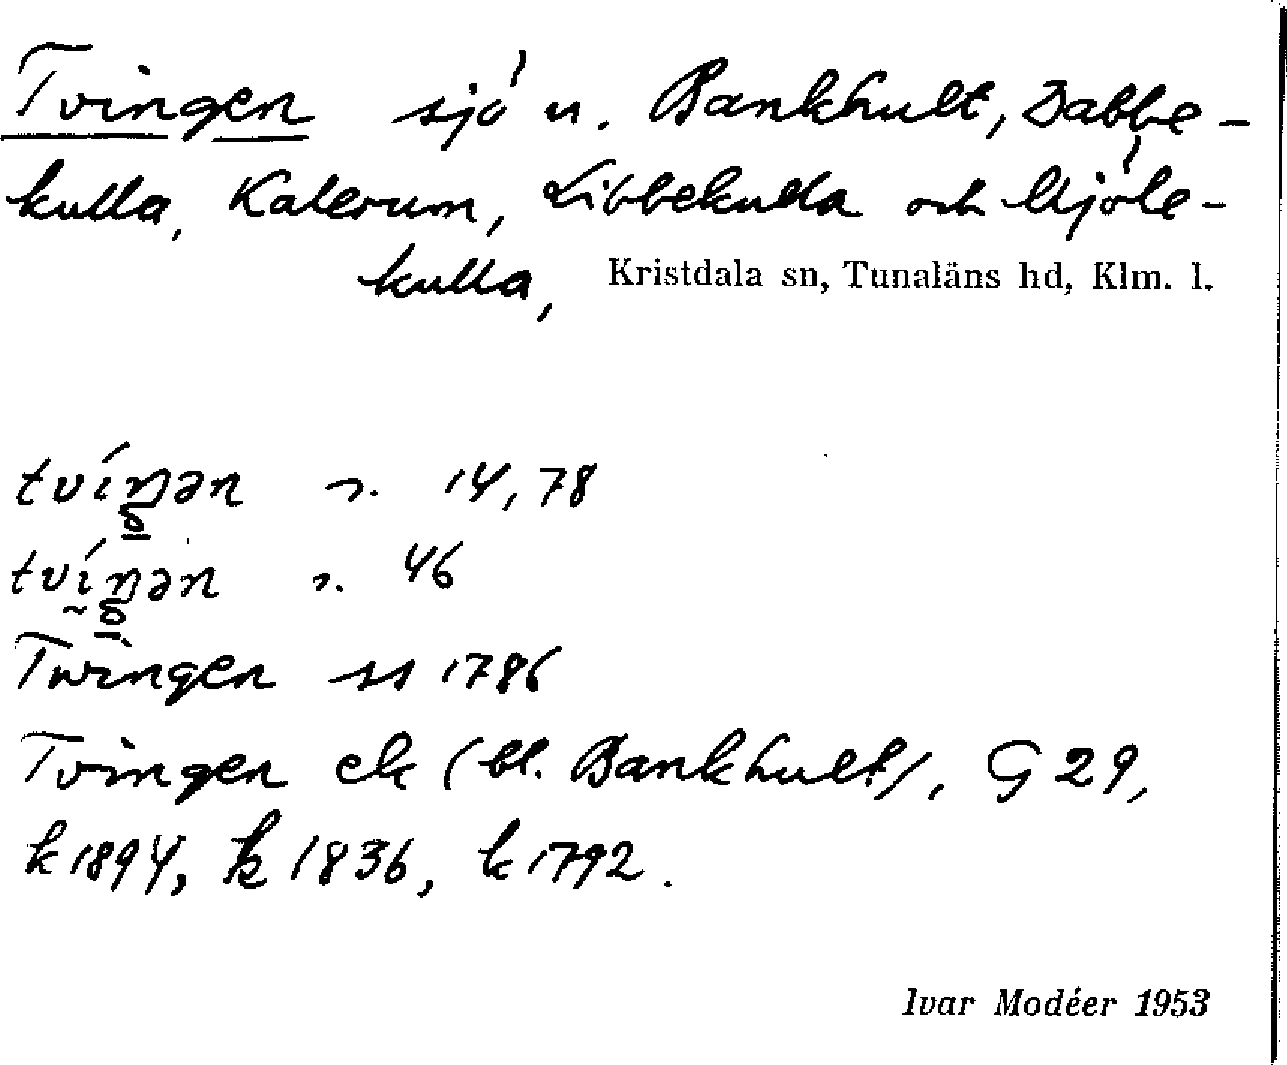 Tvingen sjö u. Bankhult, Dabbe-
kulla, Kalerum, Libbekulla och Mjöle-
kulla, Kristdala sn, Tunaläns hd, Klm. l.
tvíŋən s. 14, 78
tvíŋən s. 46
Twingen ss 1786
Tvingen ek (bl. Bankhult), G 29,
k 1894, k 1836, k 1792.
Ivar Modéer 1953